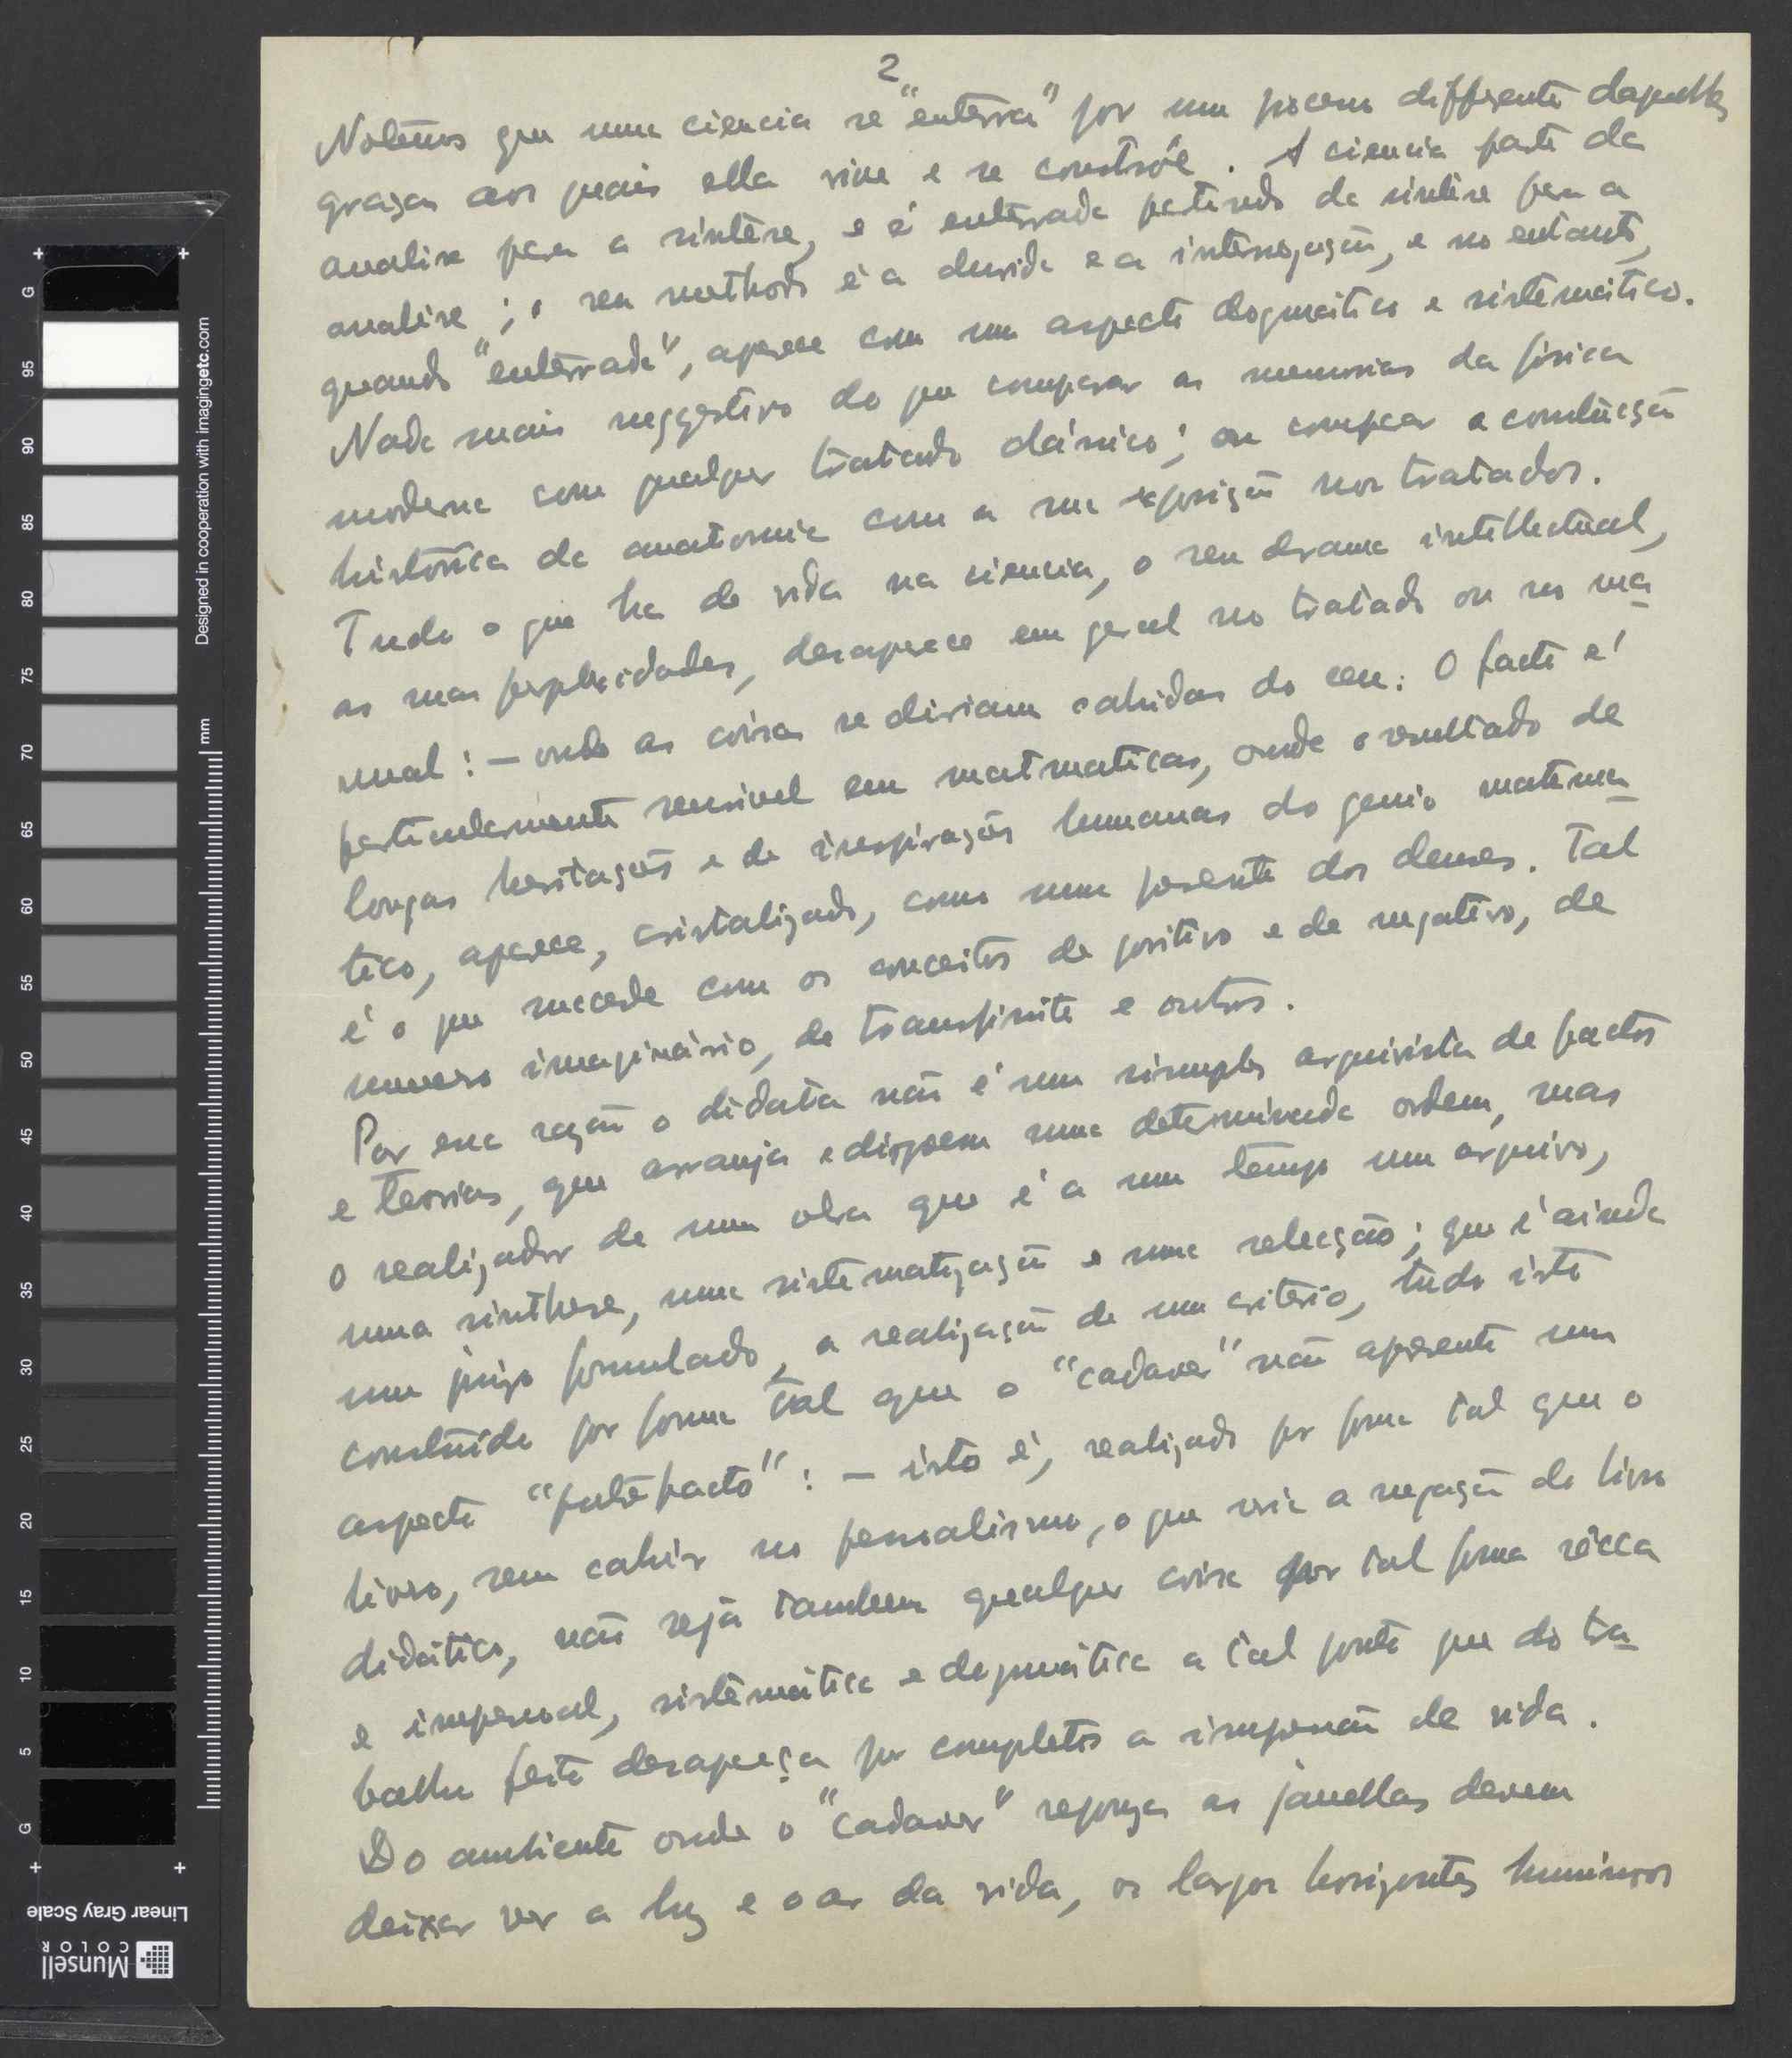 2
Notemos que uma ciencia se "enterra" por um processo differente daquelles
graças aos quais ella vive e se constróe. A ciencia parte da
analise para a sintese, e é enterrada partindo da sintese para a
analise; o seu methodo é a duvida e a interrogação, e no entanto,
quando "enterrada", aparece com um aspecto dogmático e sistemático.
Nada mais suggestivo do que comparar as memorias da fisica
moderna com qualquer tratado clássico; ou comparar a constituição
histórica da anatomia com a sua exposição nos tratados.
Tudo o que ha de vida na ciencia, o seu drama intellectual,
as suas perplexidades, desaparece em geral no tratado ou no ma
nual: — onde as coisas se diriam cahidas do ceu. O facto é
particularmente sensivel em matmaticas, onde o resultado de
longas hesitações e de inspirações humanas do genio matema
tico, aparece, cristalizado, como um presente dos deuses. Tal
é o que sucede com os conceitos de positivo e de negativo, de
numero imaginário, de transfinito e outros.
Por essa razão o didata não é um simples arquivista de factos
e teorias, que arranja e dispoem numa determinada ordem, mas
o realizador de uma obra que é a um tempo um arquivo,
uma sinthese, uma sistematização e uma selecção; que é ainda
um juizo formulado, a realização de um criterio, tudo isto
constituido por forma tal que o "cadaver" não apresente um
aspecto "putrefacto": — isto é, realizado por forma tal que o
livro, sem cahir no pessoalismo, o que seria a negação do livro
didático, não seja tambem qualquer coisa por tal forma sêcca
e impessoal, sistemática e dogmática a tal ponto que do tra
balho feito desapareça por completo a impressão de vida.
Do ambiente onde o "cadaver" repousa as janellas devem
deixar ver a luz e o ar da vida, os largos horizontes luminosos
Designed in cooperation with imagingetc.com
mm
G
95
90
85
80
75
70
65
60
55
50
45
40
35
30
25
20
15
10
5
G
Linear Gray Scale
Munsell
COLOR